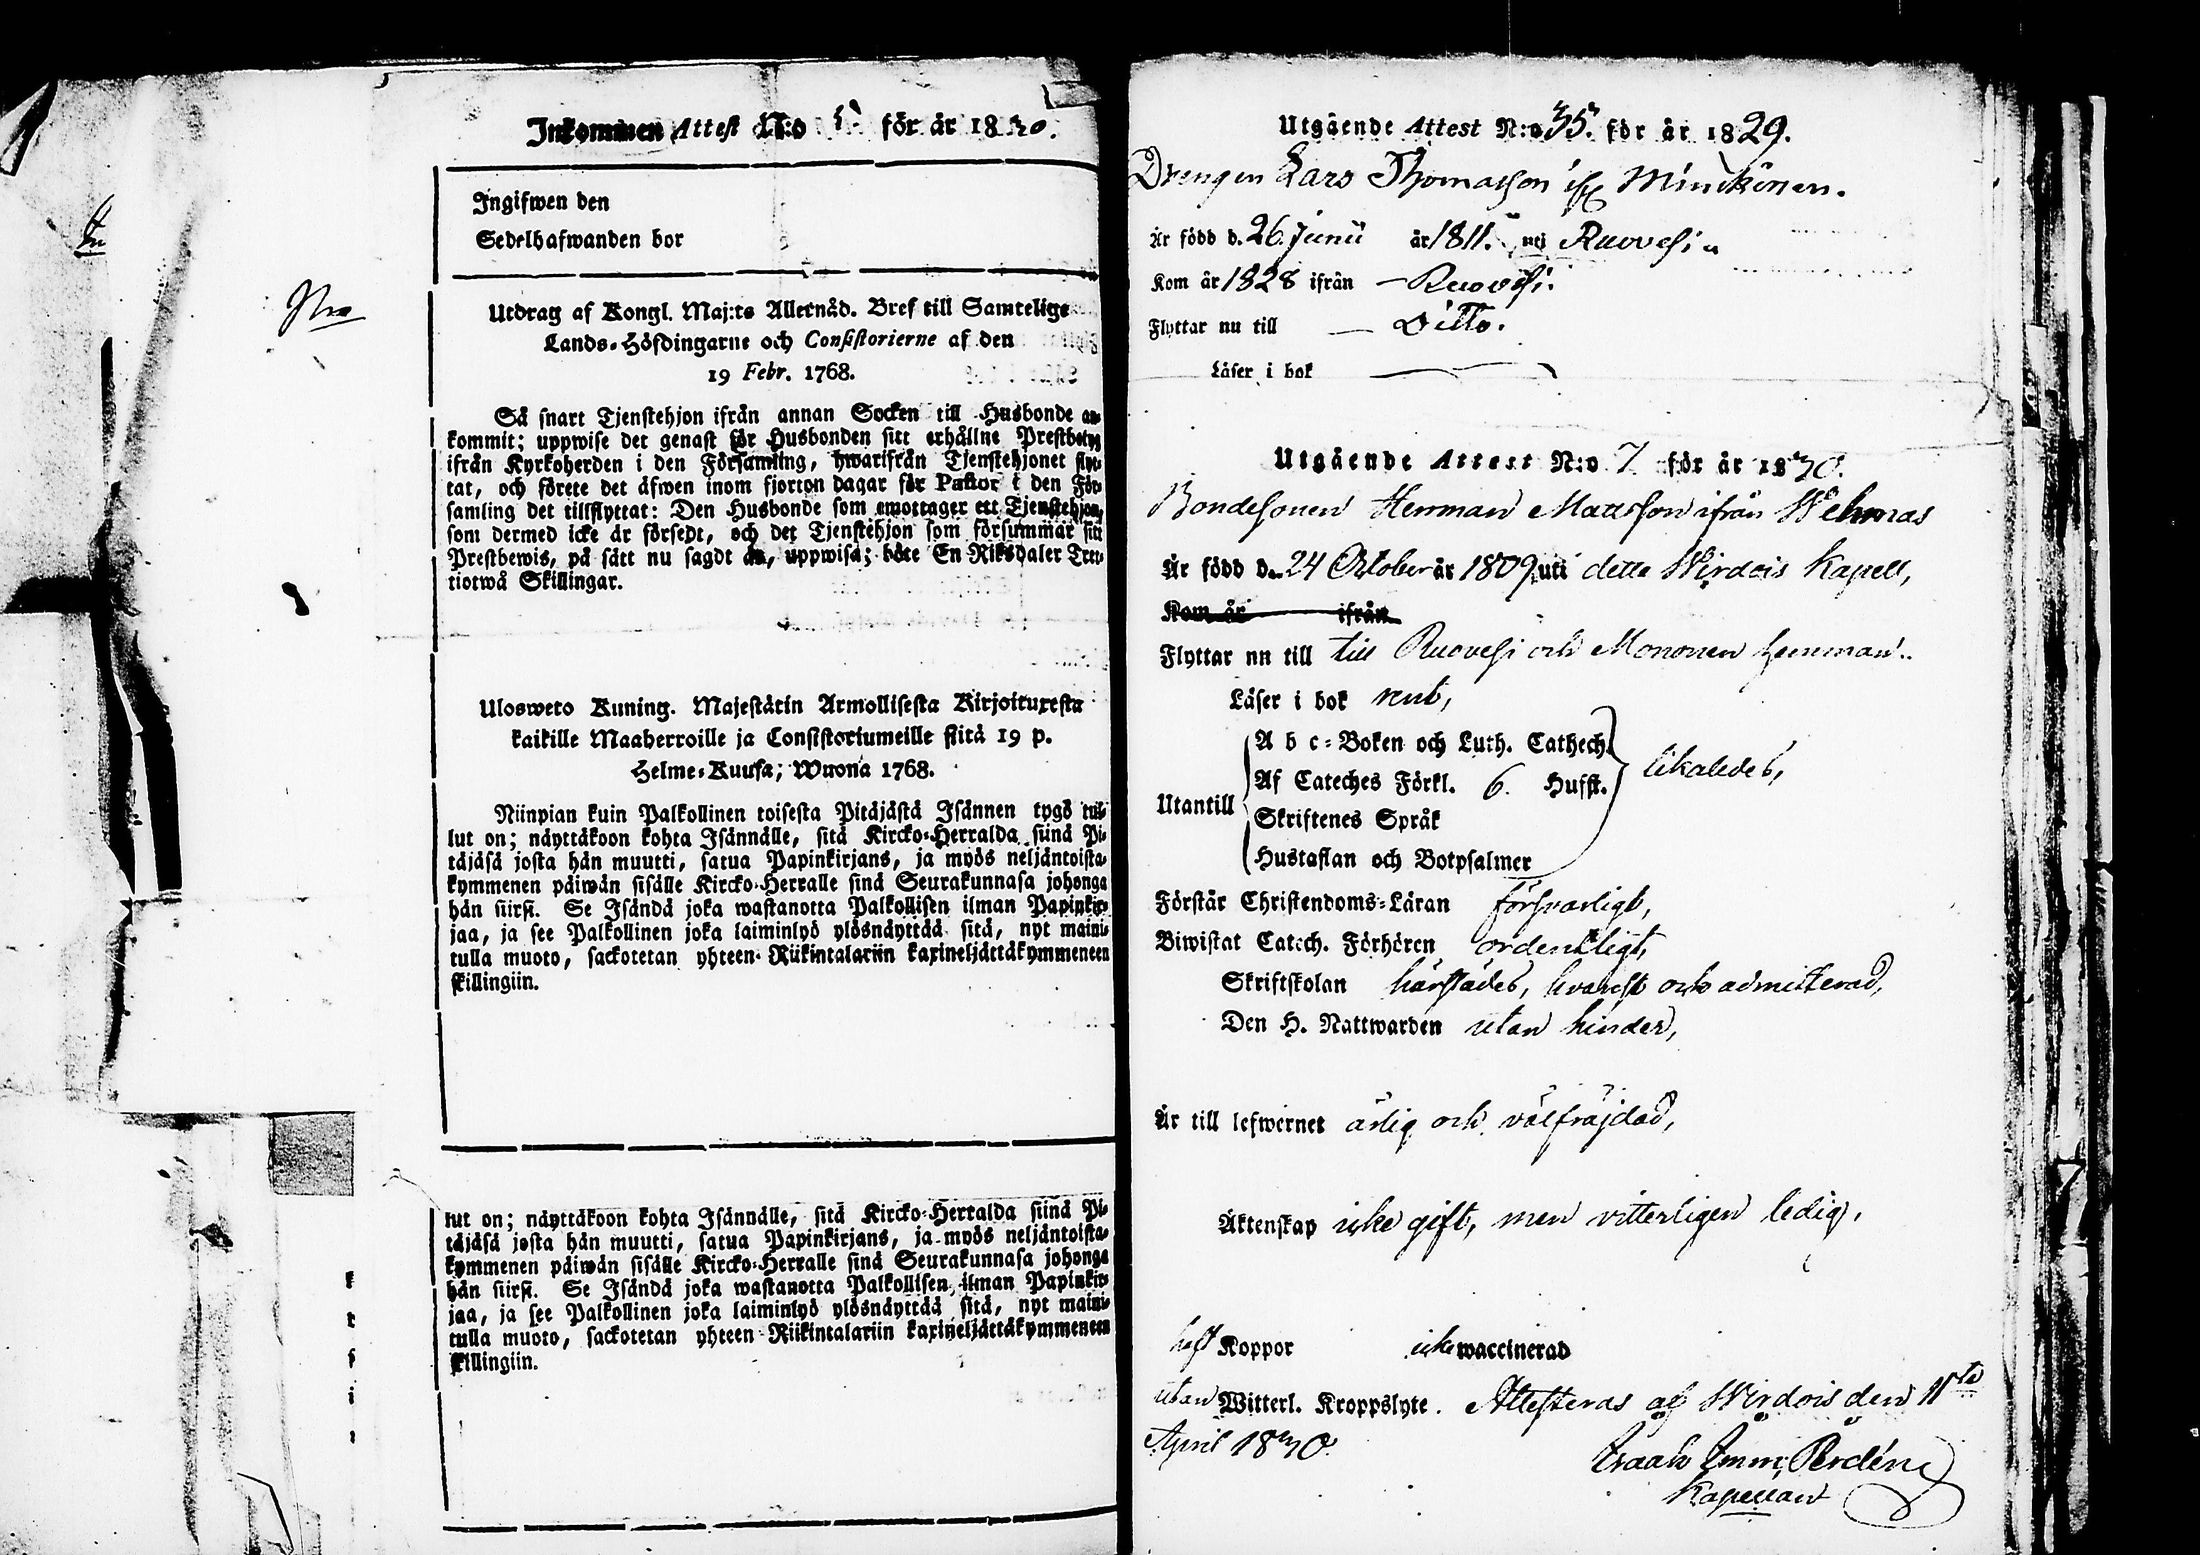 Inkommen Attest N:o 5 för år 1830.
Ingifwen den
Sedelhafwanden bor
Utdrag af Kongl. Maj:ts Allernåd. Bref till Samtelige
Lands-Höfdingarne och Consistorierne af den
19 Febr. 1768.
Så snart Tjenstehjon ifrån annan Socken till Husbonde an-
kommit; uppwise det genast för Husbonden sitt erhållne Prestbetyg
ifrån Kyrkoherden i den Församling, hwarifrån Tjenstehjonet flyt-
tat, och förete det äfwen inom fjorton dagar för Pastor i den För-
samling det tillflyttat: Den Husbonde som emottager ett Tjenstehjon,
som dermed icke är försedt, och det Tjenstehjon som försummar sitt
Prestbewis, på sätt nu sagdt är, uppwisa; böte En Riksdaler Tret-
tiotwå Skillingar.
Ulosweto Kuning. Majestätin Armollisesta Kirjoituxesta
kaikille Maaherroille ja Consistoriumeille siitä 19 p.
Helme-Kuusa, Wuona 1768.
Niinpian kuin Palkollinen toisesta Pitäjästä Isännen tygö tul-
lut on; näyttäkoon kohta Isännälle, sitä Kircko-Herralda siinä Pi-
täjäsä josta hän muutti, satua Papinkirjans, ja myös neljäntoista-
kymmenen päiwän sisälle Kircko-Herralle sinä Seurakunnasa johonga
hän siirsi. Se Isändä joka wastanotta Palkollisen ilman Papinkir-
jaa, ja see Palkollinen joka laiminlyö ylösnäyttää sitä, nyt maini-
tulla muoto, sackotetan yhteen Riikintalariin kaxineljättäkymmeneen
skillingiin.
lut on; näyttäkoon kohta Isännälle, sitä Kircko-Herralda siinä Pi-
täjäsä josta hän muutti, satua Papinkirjans, ja myös neljäntoista-
kymmenen päiwän sisälle Kircko-Herralle sinä Seurakunnasa johonga
hän siirsi. Se Isändä joka wastanotta Palkollisen ilman Papinkir-
jaa, ja see Palkollinen joka laiminlyö ylösnäyttää sitä, nyt maini-
tulla muoto, sackotetan yhteen Riikintalariin kaxineljättäkymmeneen
skillingiin.
Utgående Attest N:o 35. för år 1829.
Drengen Lars Thomasson Minckinen.
Är född d. 26 Junii år 1811. uti Ruovesi
Kom år 1828 ifrån - Ruovesi.
Flyttar nu till — Ditto.
Läser i bok
Utgående Attest N:o 7 för år 1830.
Bondesonen Herman Mattsson ifrån Wehmas
Är född d. 24 October år 1809 uti detta Wirdois Kapell,
Kom år ifrån
Flyttar nu till till Ruovesi och Mononen hemman.
Läser i bok rent,
Utantill
A b c-Boken och Luth. Cathech.
Af Cateches Förkl. 6. Hufst.
Skriftenes Språk
Hustaflan och Botpsalmer
likaledes,
Förstår Christendoms-Läran försvarligt,
Biwistat Catech. Förhören ordentligt,
Skriftskolan härstädes, hvarest och admitterad,
Den H. Nattwarden utan hinder,
Är till lefwernet ärlig och välfräjdad,
Äktenskap icke gift, men vitterligen ledig,
haft Koppor icke waccinerad
utan Witterl. Kroppslyte. Attesteras af Wirdois den 11te
April 1830.
Isaak Imm. Perdén
Kapellan